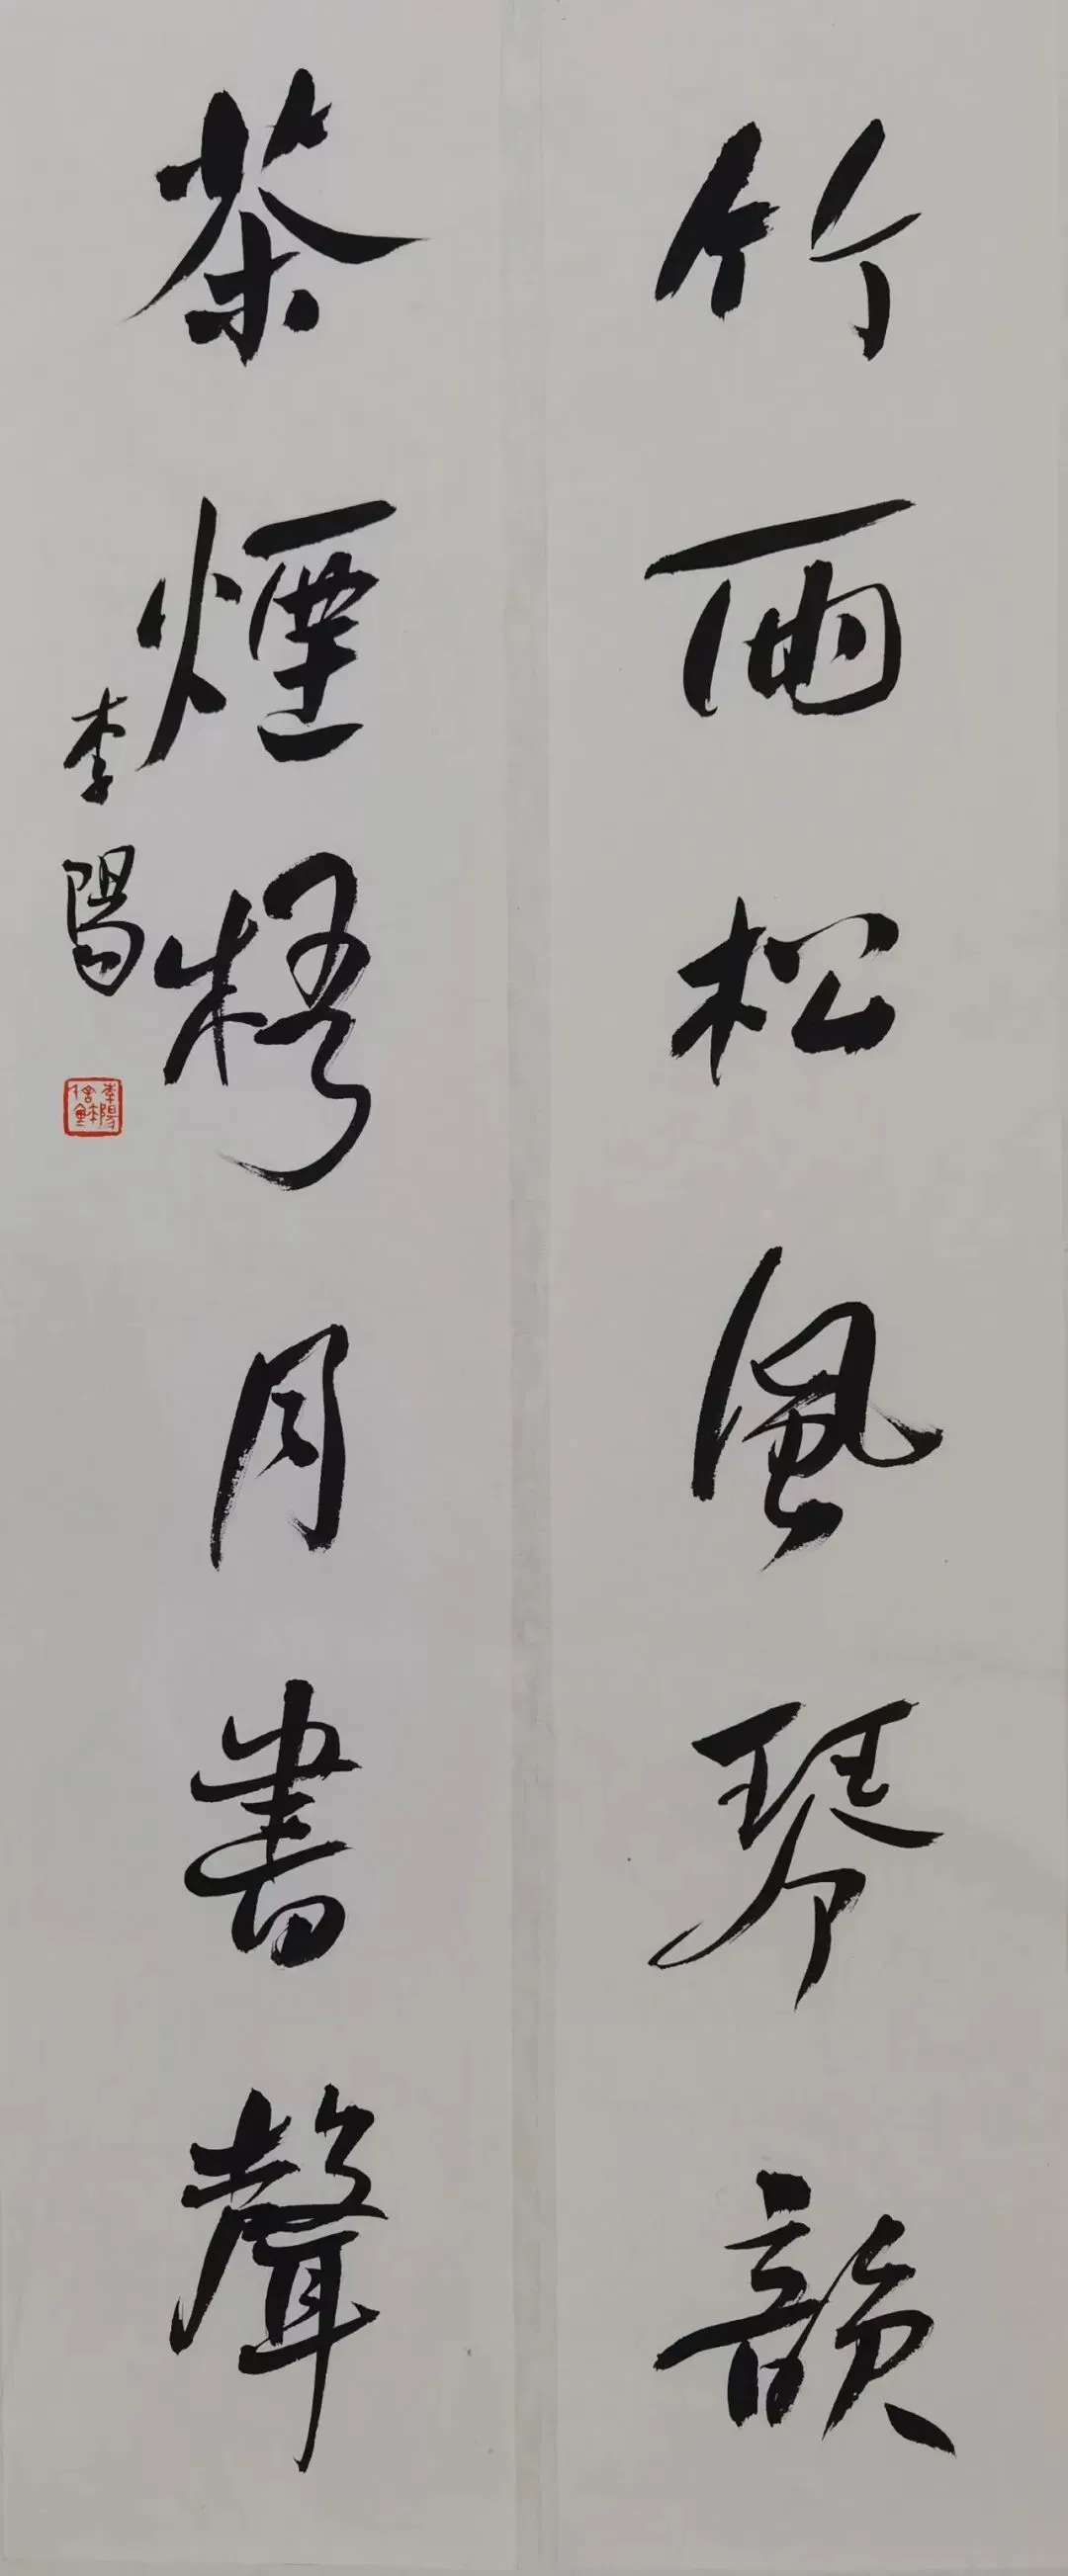 竹雨松風琴韻
茶煙梧月書聲
李陽